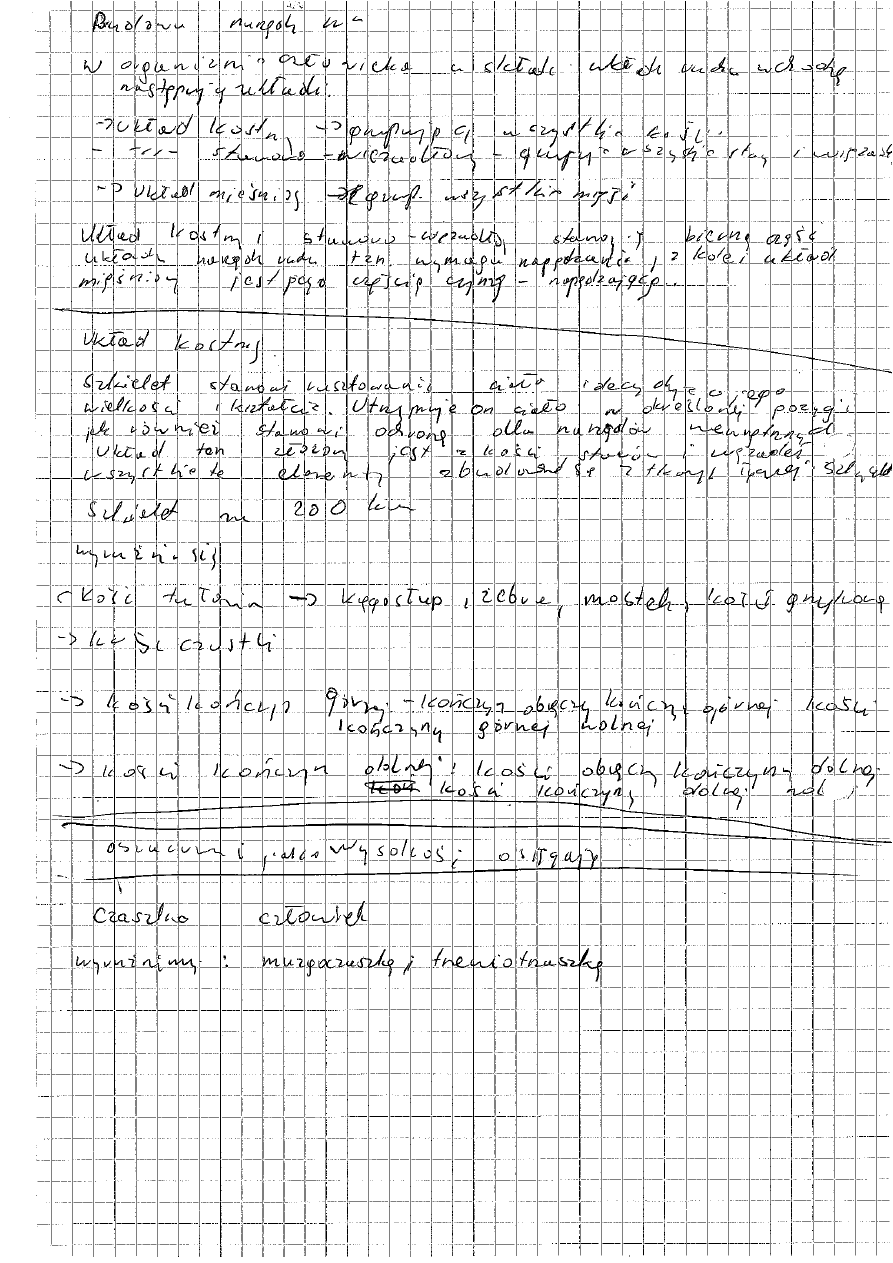 Budowa
w organizmie człowieka w skład układu ruchu wchodzą
następujący układ:
→ Układ kostny → grupujący wszystkie kości
stawowo - więzadłowy - grupuje wszystkie stawy i więzad
→ Układ mięśniowy → grup. wszystkie mięśi
Układ kostny i stawowo-więzadło stanowi bierną część
układu narządu ruchu tzn. wymaga napędzania, z kolei układ
mięśniowy jest jego częścią czynną - napędzającą.
Układ kostny
Szkielet stanowi rusztowanie ciała i decyduje o jego
wielkości i kształcie. Utrzymuje on ciało w określonej pozycji
jak również stanowi ochronę dla narządów wewnętrznych
Układ ten złożony jest z kości, stawów i więzadeł
wszystkie te elementy zbudowane są z tkanki łącznej
Szkielet 200
→ Kości tułowia → kręgosłup, żebra, mostek,
→ kości czaszki
→ kości kończyn górnej - kończyn obręczy kończyny górnej kości
kończyny górnej wolnej
→ kości kończyn dolnej: kości obręczy kończyny dolnej
kości kończyny dolnej wol
wysokości osiągają
Czaszka człowiek
wyróżniamy: mózgoczaszkę i trzewioczaszkę